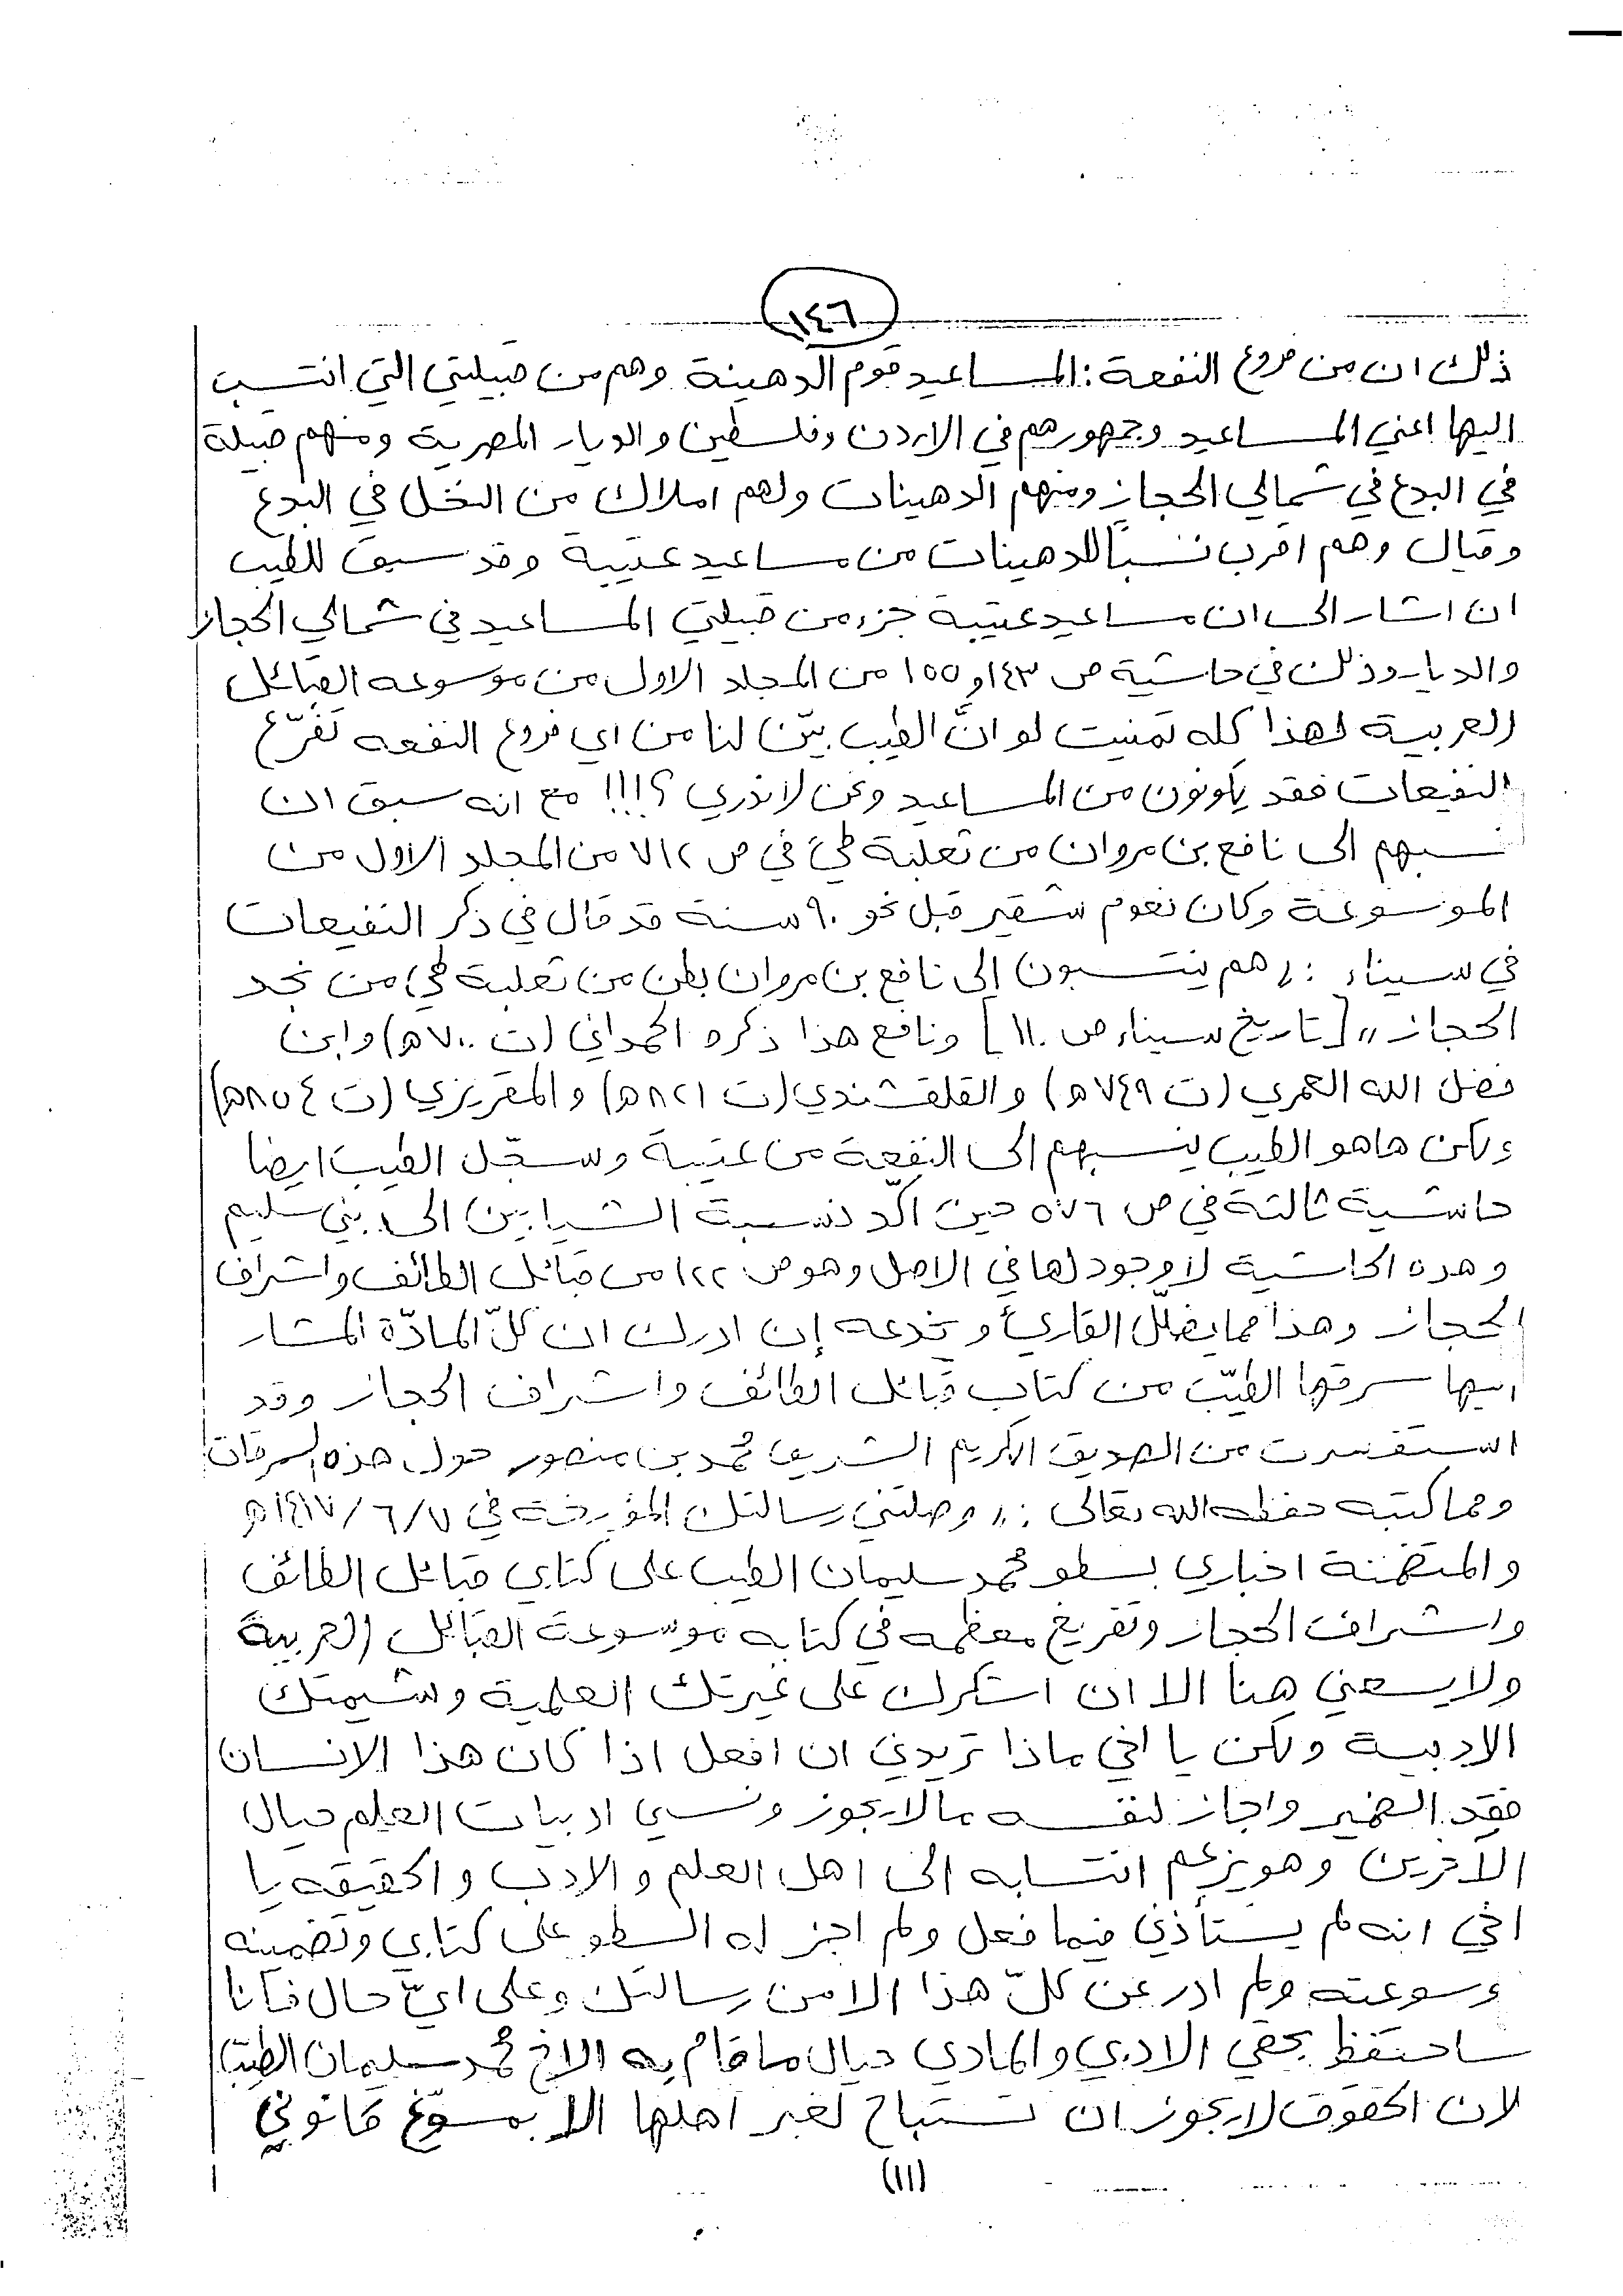 ١٤٦
ذلك ان من فروع النفعة : المساعيد قوم الدهينة وهم من قبيلتي التي انتسب
اليها اعني المساعيد وجمهورهم في الاردن وفلسطين والديار المصرية ومنهم قبيلة
في البدع في شمالي الحجاز ومنهم الدهينات ولهم املاك من النخل في البدع
وقيال وهم اقرب نسباً للدهينات من مساعيد عتيبة وقد سبق للطيب
ان اشار الى ان مساعيد عتيبة جزء من قبيلتي المساعيد في شمالي الحجاز
والديار وذلك في حاشية ص ١٤٣ و ١٥٥ من المجلد الاول من موسوعه القبائل
العربية لهذا كله تمنيت لو انّ الطيب بيّن لنا من اي فروع النفعه تفرّع
النفيعات فقد يكونون من المساعيد ونحن لا ندري ؟!!! مع انه سبق ان
نسبهم الى نافع بن مروان من ثعلبة طيّ في ص ٧١٢ من المجلد الاول من
الموسوعة وكان نعوم شقير قبل نحو ٩٠ سنة قد قال في ذكر النفيعات
في سيناء : " هم ينتسبون إلى نافع بن مروان بطن من ثعلبة طيء من نجد
الحجاز " [ تاريخ سيناء ص ١١٠ ] ونافع هذا ذكره الحمداني (ت ٧٠٠ه) وابن
فضل الله العمري (ت ٧٤٩ ه) والقلقشندي (ت ٨٢١ ه) والمقريزي (ت ٨٥٤ه)
ولكن هاهو الطيب ينسبهم الى النفعة من عتيبة وسجّل الطيب ايضا
حاشية ثالثة في ص ٥٧٦ حين اكّد نسبة الشيابين الى بني سليم
وهذه الحاشية لا وجود لها في الاصل وهو ص ١٢٢ من قبائل الطائف واشراف
الحجاز وهذا مما يضلّل القاريء ويخدعه إن ادرك ان كلّ المادّة المشار
اليها سرقها الطيّب من كتاب قبائل الطائف واشراف الحجاز وقد
استفسرت من الصديق الكريم الشريف محمد بن منصور حول هذه السرقات
ومما كتبه حفظه الله تعالى : " وصلتني رسالتك المؤرخة في ١٤١٧/٦/٧ه
والمتضمنة اخباري بسطو محمد سليمان الطيب على كتابي قبائل الطائف
واشراف الحجاز وتفريغ معظمه في كتابه موسوعة القبائل العربية
ولا يسعني هنا الا ان اشكرك على غيرتك العلمية وشيمتك
الادبية ولكن يا اخي ماذا تريدني ان افعل اذا كان هذا الانسان
فقد الضمير واجاز لنفسه مالا يجوز ونسي ادبيات العلم حيال
الآخرين وهو يزعم انتسابه الى اهل العلم والادب والحقيقه يا
اخي انه لم يستأذني فيما فعل ولم اجز له السطو على كتابي وتضمينه
وسوعته ولم ادر عن كلّ هذا الا من رسالتك وعلى ايّ حال فأنا
ساحتفظ بحقي الادبي والمادي حيال ما قام به الاخ محمد سليمان الطيّب
لان الحقوق لا يجوز ان تستباح لغير اهلها الا بمسوّغ قانوني
(١١)